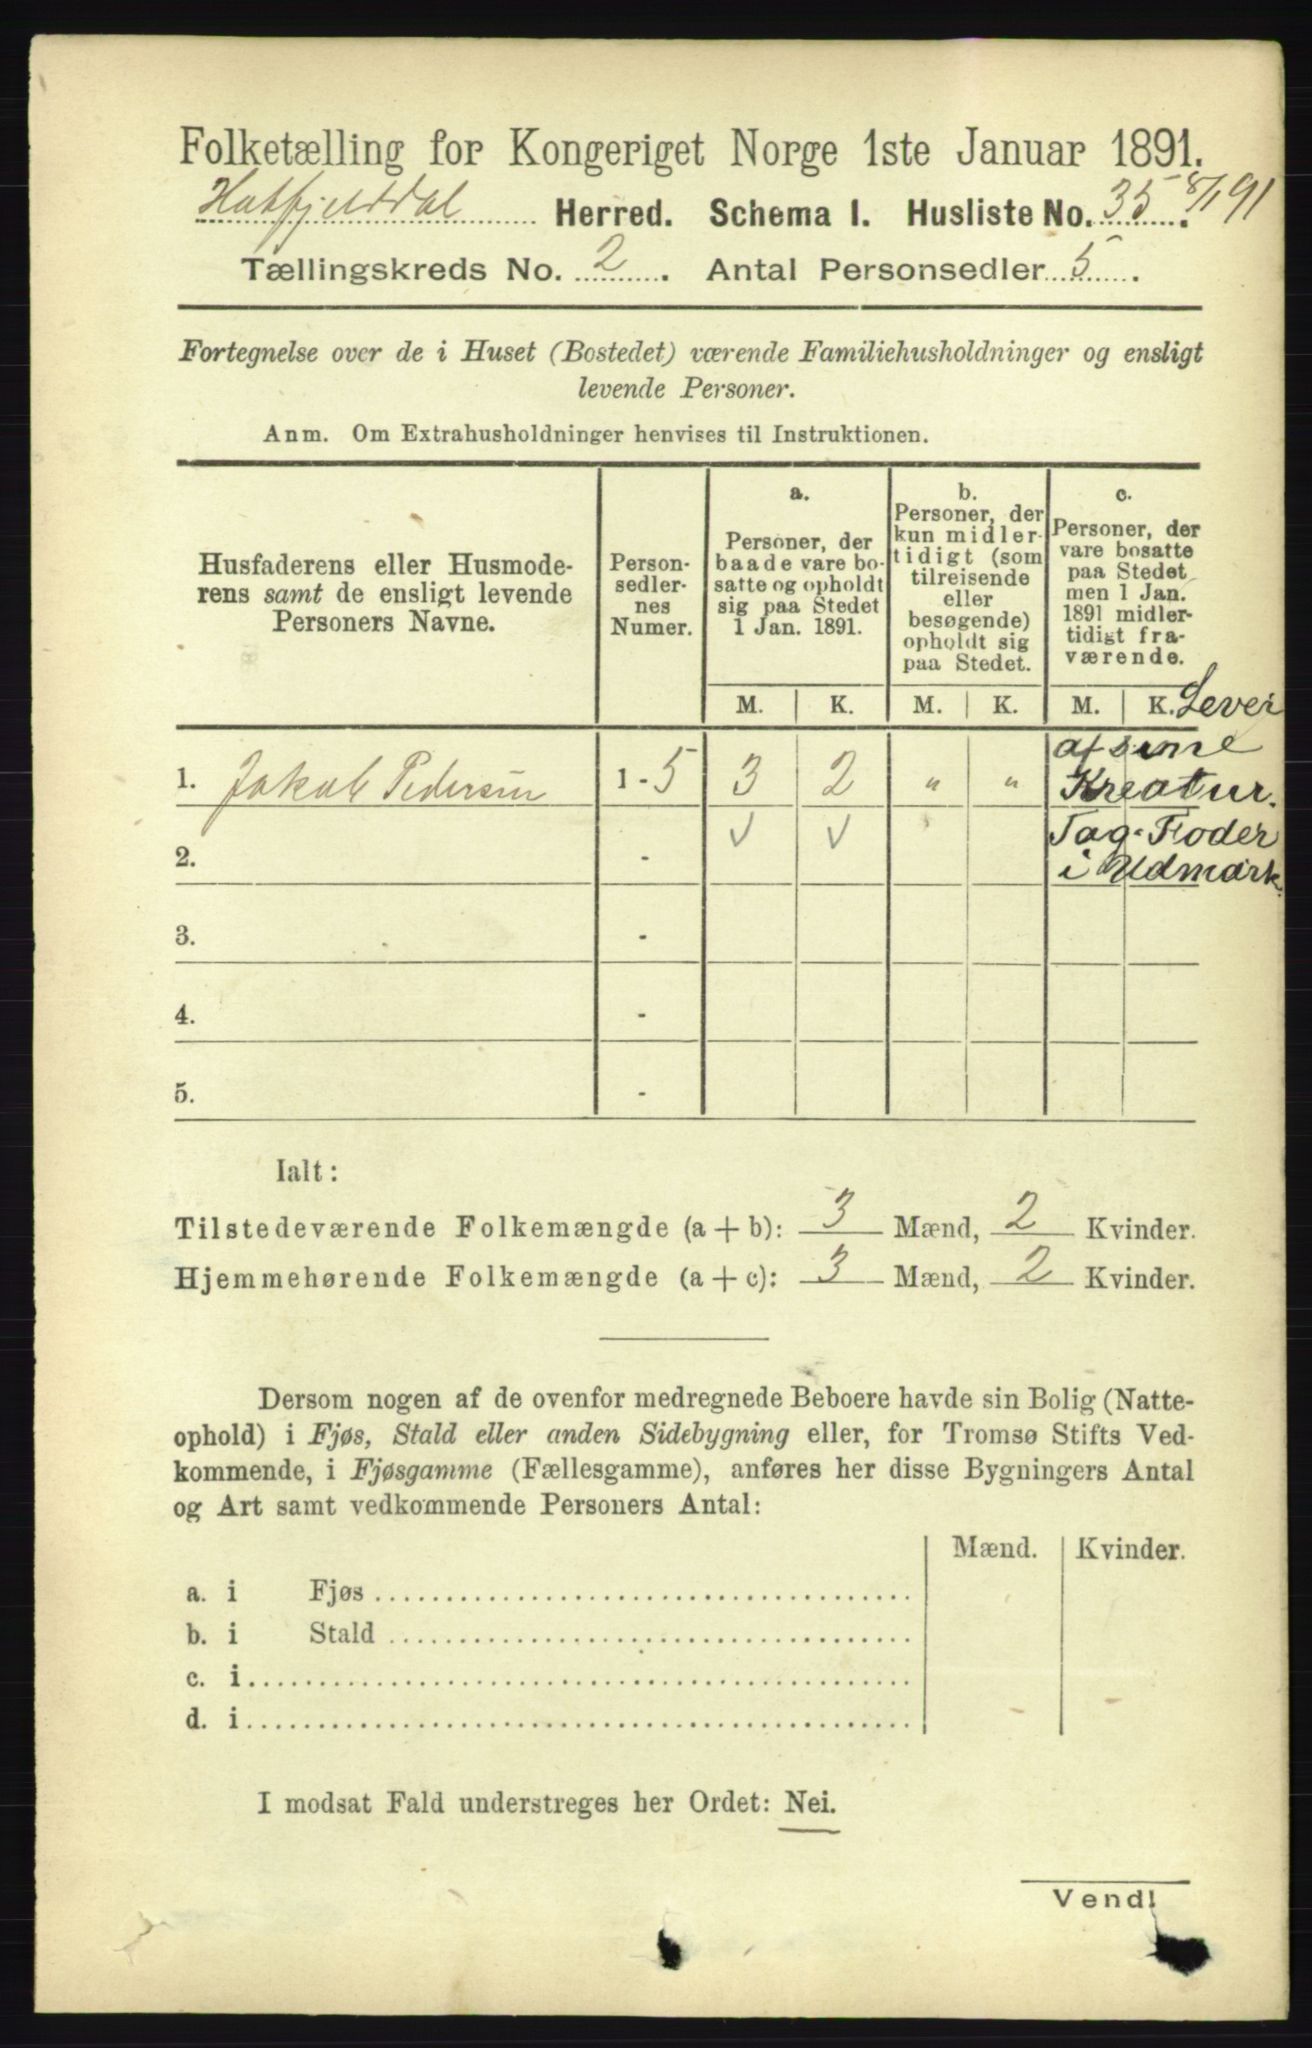 Folketælling for Kongeriget Norge 1ste Januar 1891.
Hatfjelddal Herred. Schema I. Husliste No. 35. 8/1 91
Tællingskreds No. 2. Antal Personsedler 5.
Fortegnelse over de i Huset (Bostedet) værende Familiehusholdninger og ensligt
levende Personer.
Anm. Om Extrahusholdninger henvises til Instruktionen.
Husfaderens eller Husmode-
rens samt de ensligt levende
Personers Navne.
Person-
sedler-
nes
Numer.
a.
Personer, der
baade vare bo-
satte og opholdt
sig paa Stedet
1 Jan. 1891.
b.
Personer, der
kun midler-
tidigt (som
tilreisende
eller
besøgende)
opholdt sig
paa Stedet.
c.
Personer, der
vare bosatte
paa Stedet
men 1 Jan.
1891 midler-
tidigt fra-
værende.
M. K. M. K. M. K. Lever
af sine
1. Jakob Pedersen 1-5 3 2 " " Kreatur.
V V Tag. Foder
2. - i Udmark.
3. -
4. -
5. -
Ialt:
Tilstedeværende Folkemængde (a + b): 3 Mænd, 2 Kvinder.
Hjemmehørende Folkemængde (a + c): 3 Mænd, 2 Kvinder.
Dersom nogen af de ovenfor medregnede Beboere havde sin Bolig (Natte-
ophold) i Fjøs, Stald eller anden Sidebygning eller, for Tromsø Stifts Ved-
kommende, i Fjøsgamme (Fællesgamme), anføres her disse Bygningers Antal
og Art samt vedkommende Personers Antal:
Mænd. Kvinder.
a. i Fjøs
b. i Stald
c. i
d. i
I modsat Fald understreges her Ordet: Nei.
Vend!